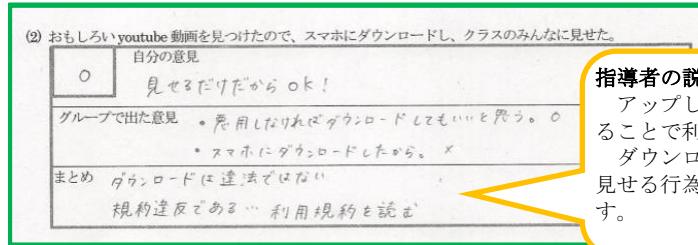 (2) おもしろい youtube 動画を見つけたので、スマホにダウンロードし、クラスのみんなに見せた。
自分の意見
○
見せるだけだから ok！
グループで出た意見 ・悪用しなければダウンロードしてもいいと思う。○
・スマホにダウンロードしたから。×
まとめ ダウンロードは違法ではない
規約違反である… 利用規約を読む
指導者の説
アップし
ることで利
ダウンロ
見せる行為
す。